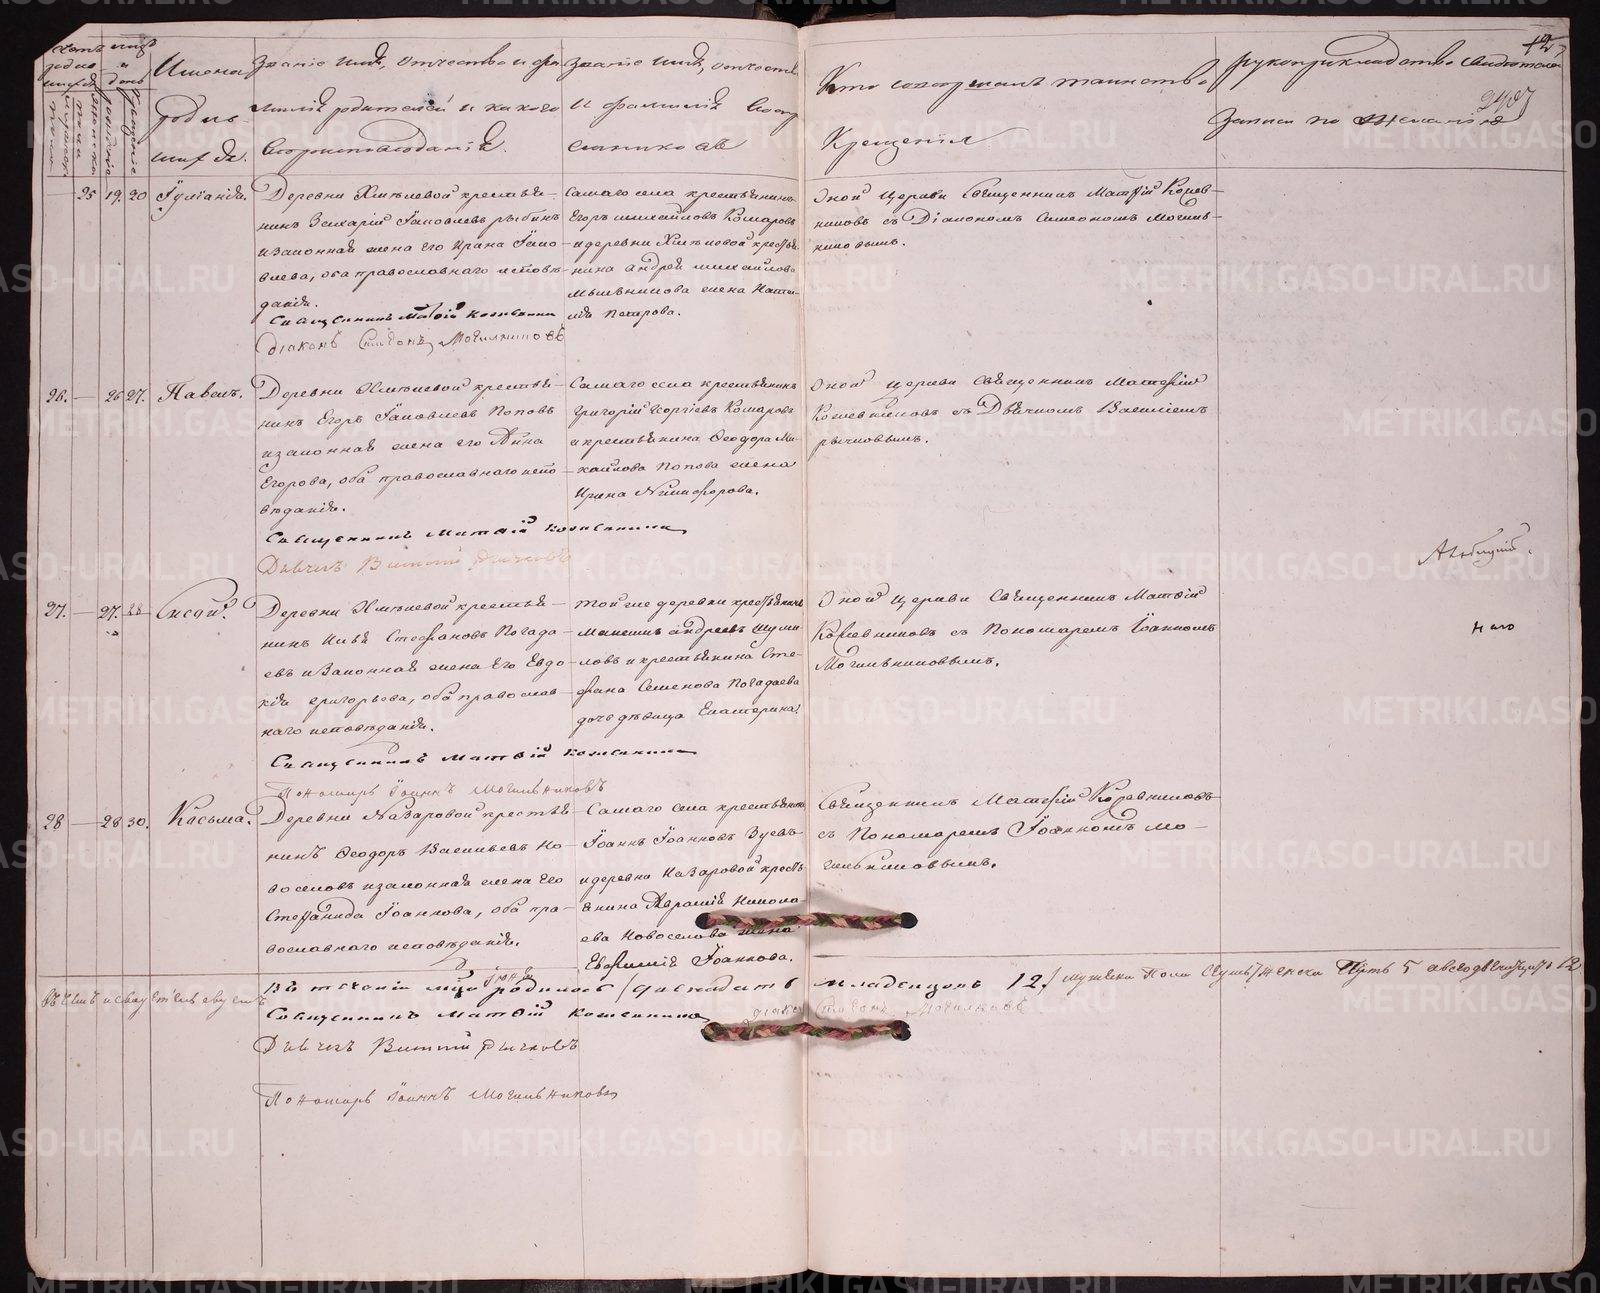 Имена родившихся.
Званіе имя, отчество и фамилія родителей и какого вероисповѣданія.
Званіе имя, отчество и фамилія восприемниковъ
Кто совершалъ таинство Крещенія
Рукоприкладство свидѣтелей записи по желанію
12
25 19. 20 Іуліанія.
Деревни Хмѣлевой крестья-
нинъ Захарій Іаковлевъ рыбинъ
и законная жена его Ирина Іако-
влева, оба православнаго исповѣ-
данія.
Священникъ Матѳій Кожевник
діаконъ Симеонъ Могилниковъ
Самаго села крестьянинъ
Егоръ михайловъ Комаровъ
и деревни Хмѣлевой крестья-
нина андрея михайлова
мыльникова жена Ната-
лія Петрова.
Оной Церкви Священникъ Матѳій Кожев-
никовъ съ Діакономъ Симеономъ Могиль-
никовымъ.
26. — 26 27. Павелъ.
Деревни Хмѣлевой крестья-
нинъ Егоръ Іаковлевъ Поповъ
и законная жена его Анна
Егорова, оба православнаго испо-
вѣданія.
Священникъ Матѳій Кожевник
Дьячекъ Рычковъ
Самаго села крестьянинъ
Григорій Георгіевъ Комаровъ
и крестьянина Ѳеодора Ми-
хайлова Попова жена
Ирина Никифорова.
Оной Церкви Священникъ Матѳій
Кожевниковъ съ Дьячкомъ
рычковымъ.
27. — 27. 28
Деревни Хмѣлевой крестья-
нинъ Илья Стефановъ Погада-
евъ и Законная жена Его Евдо-
кія григорьева, оба православ-
наго исповѣданія.
Священникъ Матѳій Кожевник
Пономарь Іоаннъ Могильниковъ
той же деревни крестьянинъ
андреевъ Шуми-
ловъ и крестьянина Сте-
фана Семенова Погадаева
дочь дѣвица Екатерина.
Оной Церкви Священникъ Матѳій
Кожевниковъ съ Пономаремъ Іоанномъ
Могильниковымъ.
28 — 28 30. Касьма.
Деревни Назаровой крестья-
нинъ Ѳеодоръ Васильевъ Но-
воселовъ и законная жена его
Стефанида Іоаннова, оба пра-
вославнаго исповѣданія.
Самаго села крестьянинъ
Іоаннъ Іоанновъ Зуевъ
и деревни Назаровой кресть-
янина Никола-
ева Новоселова жена
Евфимія Іоаннова.
Священникъ Матѳій Кожевниковъ
съ Пономаремъ Іоанномъ Мо-
гильниковымъ.
Въ теченіи родилось (двенадцать младенцовъ 12) мужеска Пола Семь 7 женска Пять 5 а всего двенадцать 12
Въ чемъ и свидетельствуемъ
Священникъ Матѳій Кожевник
діаконъ Симеонъ Могилниковъ
Дьячекъ Рычковъ
Пономарь Іоаннъ Могильниковъ
METRIKI.GASO-URAL.RU